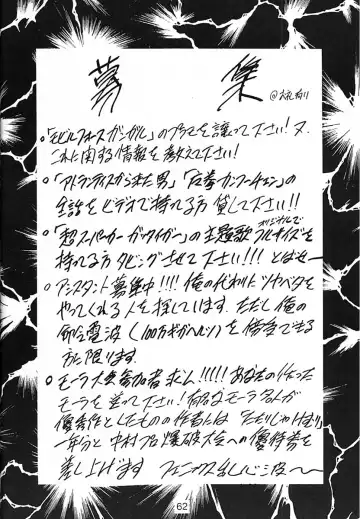 募集
@お礼有り
○「モビルフォースガンガル」のプラモを譲って下さい!又、
これに関する情報を教えて下さい!
○「アトランティスから来た男」「反拳カンフーチェン」の
生話をビデオで持てる方 貸して下さい!!
オリジナルで
○「超スーパーカーガッタイガー」の主題歌フルサイズを
持てる方 ダビングさせて下さい!!! とばせー
○アシスタント募集中!!!! 俺の代わりにツヤベタを
やってくれる人を探しています. ただし俺の
命令電波(100万ギガヘルツ)を傍受できる
方に限ります.
○モーラ大会参加者求ム!!!!! あなたの作った
モーラを送って下さい!
優秀作としたものの作者には
一年分と中村プロ爆破大会への優待券を
差し上げます フェニックス乱心波〜〜
62